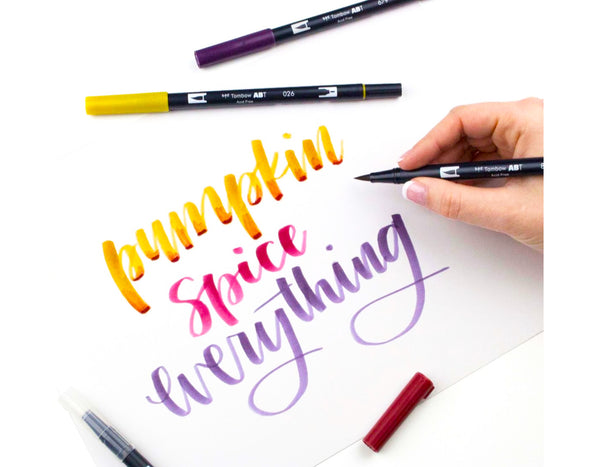 679
Tombow ABT
Acid Free
Tombow ABT 026
Acid Free
pumpkin
Tombow ABT
Acid Free
spice
everything